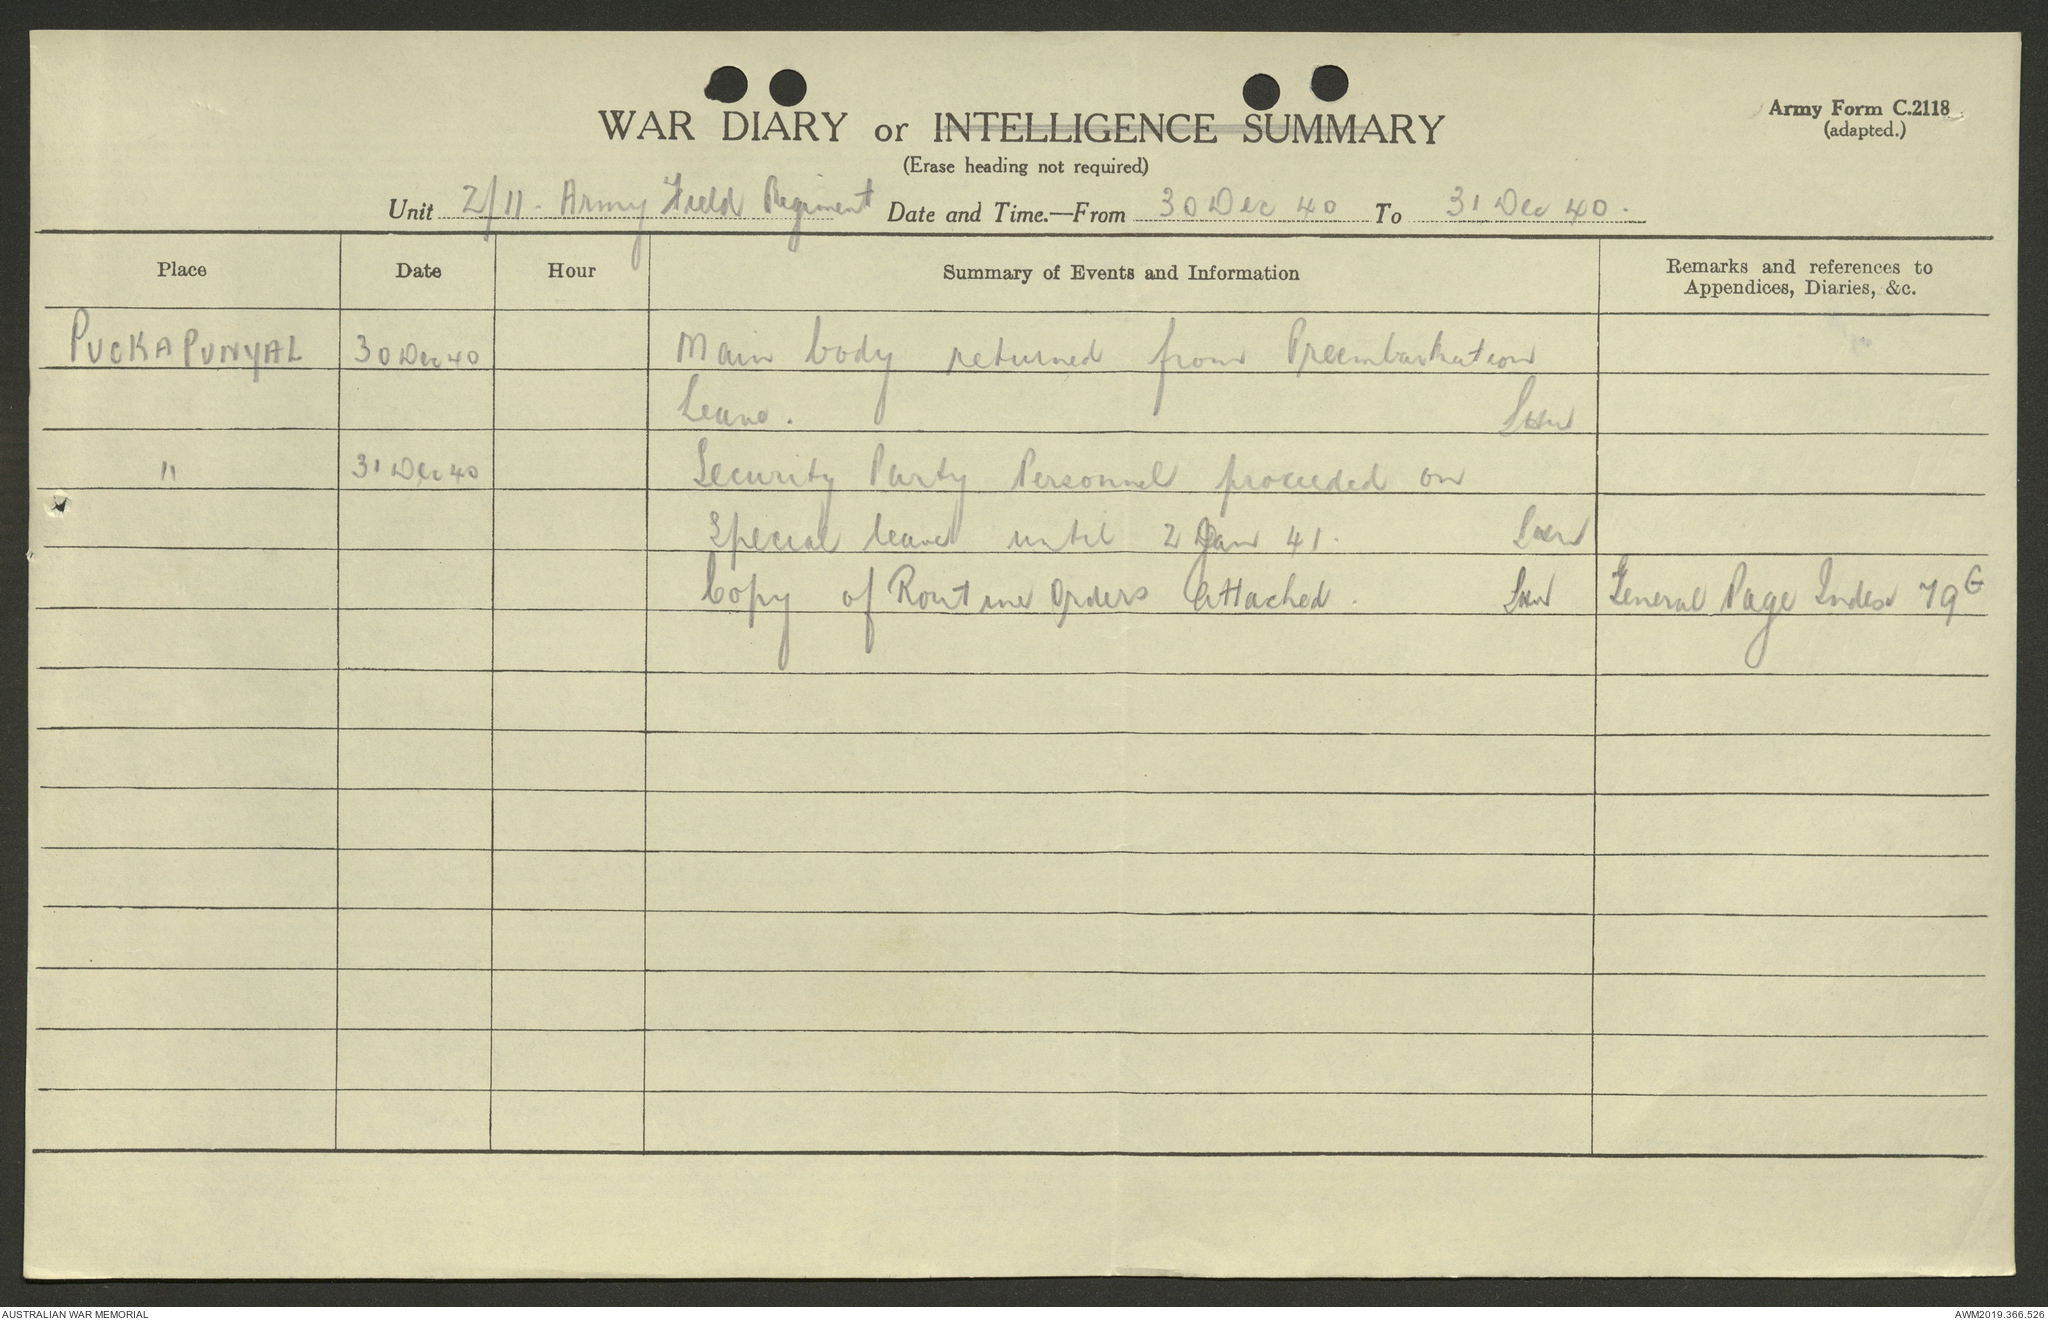 Army Form C.2118
(adapted.)
WAR DIARY or INTELLIGENCE SUMMARY
(Erase heading not required)
Unit 2/11. Army Field Regiment Date and Time.—From 30 Dec 40 To 31 Dec 40.
Place Date Hour Summary of Events and Information Remarks and references to
Appendices, Diaries, &c.
PUCKAPUNYAL 30 Dec 40 Main body returned from Preembarkation
Leave.
" 31 Dec 40 Security Party Personnel proceeded on
Special leave until 2 Jan 41.
Copy of Routine Orders attached. General Page Index 79G
AUSTRALIAN WAR MEMORIAL
AWM2019.366.526